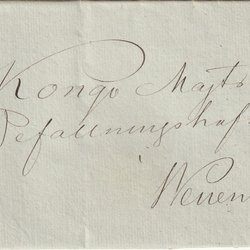 Kongl Majts
Befallningshaf
Wenen